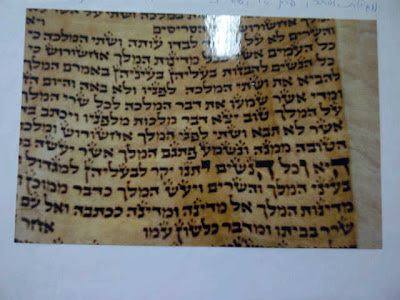 והשרים לא על המלך לבדו עותה ושתי המלכה כי
כל העמים אשר בכל מדינות המלך אחשורוש כי
כל הנשים להבזות בעליהן בעיניהן באמרם המלך
להביא את ושתי המלכה לפניו ולא באה והיום הזה
ומדי אשר שמעו את דבר המלכה לכל שרי המלך
על המלך טוב יצא דבר מלכות מלפניו ויכתב
אשר לא תבוא ושתי לפני המלך אחשורוש
הטובה ממנה ונשמע פתגם המלך אשר יעשה
היא וכל הנשים יתנו יקר לבעליהן למגדול
בעיני המלך והשרים ויעש המלך כדבר ממוכן
מדינות המלך אל מדינה ומדינה ככתבה ואל עם
שרר בביתו ומדבר כלשון עמו אחר